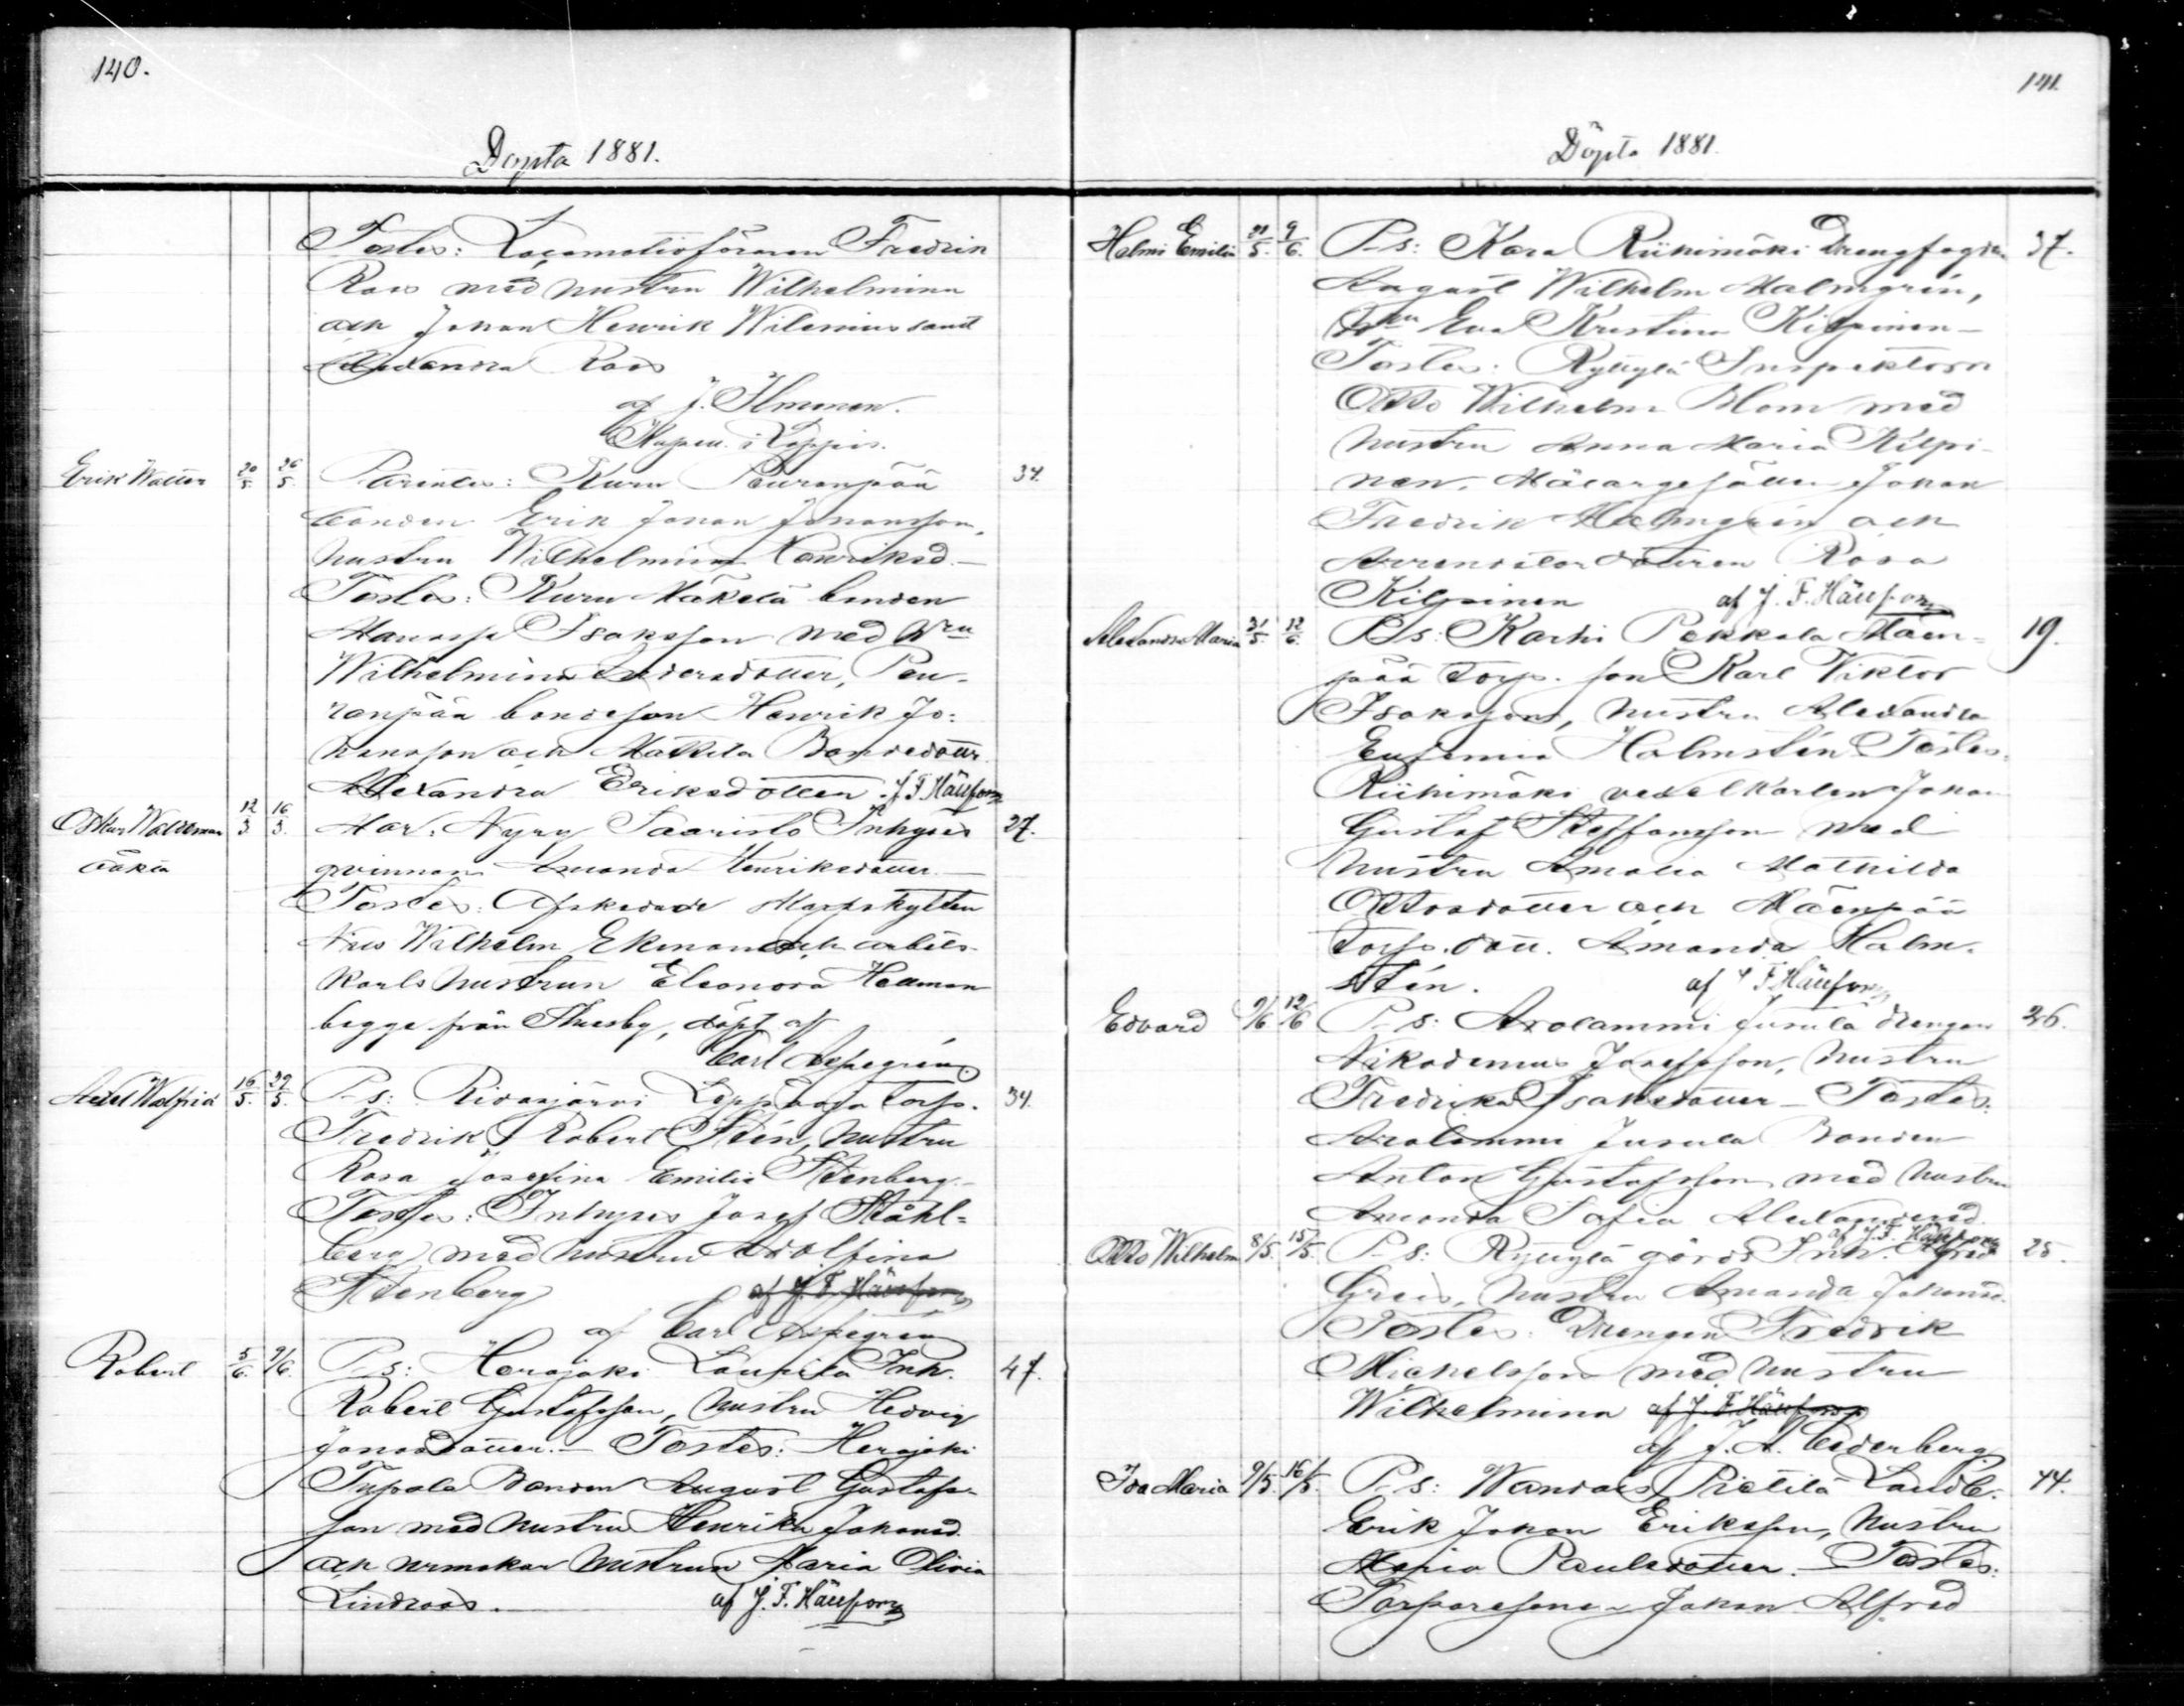 140.
Döpta 1881.
Testes: Locomotivföraren Fredrik
Roos med hustru Wilhelmina
och Johan Henrik Wilenius samt
Alexandra Roos
af J. Ilmonen.
Kapell. i Loppis.
Erik Walter 20/5. 26/5. Parentes: Kuru Peuranpää 34.
bonden Erik Johan Johansson,
hustru Wilhelmina Henriksd. —
Testes: Kuru Mäkelä bonden
Manasse Isaksson med h:ru
Wilhelmina Andersdotter, Peu-
ranpää bondeson Henrik Jo-
hansson och Mäkelä Bondedottr
Alexandra Eriksdotter. J. F. Hällfors
Oskar Waldemar 12/3. 16/3. Mar: Nyry Saaristo Inhyses 27.
oäkta qvinnan Amanda Henriksdotter. —
Testes: Afskedade skarpskytten
Nils Wilhelm Ekman och arbets-
karls hustrun Eleonora Hellman
begge från Thusby, döpt af
Carl Aspegrén
Axel Walfrid 16/5. 29/5. P-s: Ridasjärvi Torp. 34.
Fredrik Robert Stén, hustru
Rosa Josefina Emilia Stenberg. —
Testes: Inhyses Josef Ståhl-
berg med hustru Adolfina
Stenberg af J. F. Hällfors
af Carl Aspegrén
Robert 5/6. 9/6. P-s: Herajoki Laurila Inh. 47.
Robert Gustafsson, hustru Hedvig
Jonasdotter. — Testes: Herajoki
Tupala Bonden August Gustafs-
son med hustru Henrika Johansd.
och urmakar hustrun Maria Olivia
Lindroos. — af J. F. Hällfors
141.
Döpta 1881.
Helmi Emilia 31/5. 9/6. P-s: Kara Riihimäki Drengfogden 37.
August Wilhelm Malmgrén,
h:ru Eva Kristina Kilpinen —
Testes: Ryttylä Inspektoren
Otto Wilhelm Blom med
hustru Anna Maria Kilpi-
nen, Målargesällen Johan
Fredrik Malmgrén och
Arrendator dottren Rosa
Kilpinen af J. F. Hällfors
Alexandra Maria 31/5. 12/6. P-s: Karhi Pekkala Mäen- 19.
pää torp. son Karl Viktor
Isaksson, hustru Alexandra
Eufemia Holmstén Testes:
Riihimäki vexelkarlen Johan
Gustaf Steffansson med
hustru Amalia Mathilda
Ottosdotter och Mäenpää
torp. dott. Amanda Holm-
stén. af J. F. Hällfors
Edvard 9/6 12/6 P-s: Arolammi Jusula drengen 26.
Nikodemus Josefsson, hustru
Fredrika Isaksdotter — Testes:
Arolammi Jusula Bonden
Anton Gustafsson med hustru
Amanda Sofia Alexandersd.
af J. F. Hällfors
Otto Wilhelm 8/5. 15/5. P-s: Ryttylä gårds Inh. Alfred 25.
hustru Amanda Johansd.
Testes: Drengen Fredrik
Michelsson med hustru
Wilhelmina af J. F. Hällfors
af J. A. Cederberg
Ida Maria 9/5. 16/5. P-s: Wandais Pietilä Landb. 44.
Erik Johan Eriksson, hustru
Maria Paulsdotter. — Testes:
Torparesonen Johan Alfred